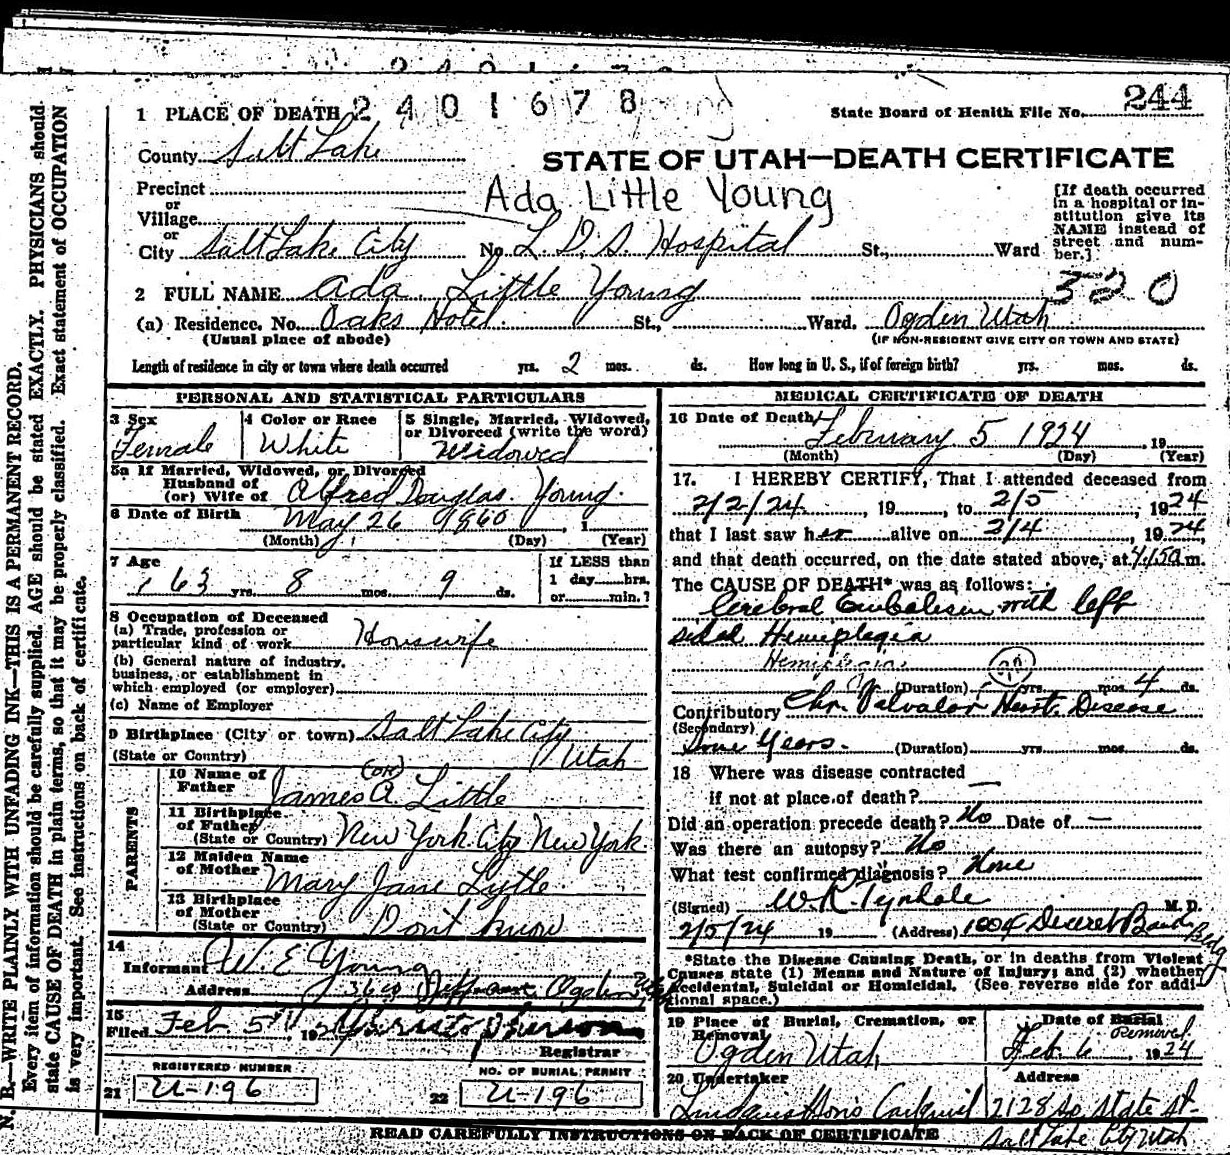 2 4 0 1 6 7 8
1 PLACE OF DEATH
State Board of Health File No. 244
County Salt Lake
STATE OF UTAH—DEATH CERTIFICATE
Precinct
or
Village
or
Ada Little Young
[If death occurred in a hospital or institution give its NAME instead of street and number.]
City Salt Lake City No. L. D. S. Hospital St., Ward
2 FULL NAME Ada Little Young
320
(a) Residence. No. Oaks Hotel St., Ward. Ogden Utah
(Usual place of abode) (IF NON-RESIDENT GIVE CITY OR TOWN AND STATE)
Length of residence in city or town where death occurred yrs. 2 mos. ds. How long in U. S., if of foreign birth? yrs. mos. ds.
PERSONAL AND STATISTICAL PARTICULARS
3 Sex Female
4 Color or Race White
5 Single, Married, Widowed, or Divorced (write the word) Widowed
5a If Married, Widowed, or Divorced
Husband of
(or) Wife of Alfred Douglas Young
6 Date of Birth May 26 1860, 1
(Month) (Day) (Year)
7 Age 63 yrs. 8 mos. 9 ds.
If LESS than
1 day hrs.
or min.?
8 Occupation of Deceased
(a) Trade, profession or
particular kind of work Housewife
(b) General nature of industry,
business, or establishment in
which employed (or employer)
(c) Name of Employer
9 Birthplace (City or town) Salt Lake City
(State or Country) Utah
PARENTS
10 Name of Father James (or) A Little
11 Birthplace of Father
(State or Country) New York City New York
12 Maiden Name of Mother Mary Jane Lytle
13 Birthplace of Mother
(State or Country) Don't know
14
Informant W. E Young
Address Ogden
15
Filed Feb 5th, 192
Registrar
REGISTERED NUMBER
21 U-196
NO. OF BURIAL PERMIT
22 U-196
MEDICAL CERTIFICATE OF DEATH
16 Date of Death February 5 1924, 19
(Month) (Day) (Year)
17. I HEREBY CERTIFY, That I attended deceased from
2/2/24, 19, to 2/5, 1924
that I last saw her alive on 2/4, 1924,
and that death occurred, on the date stated above, at m.
The CAUSE OF DEATH* was as follows:
Cerebral Embolism with left
sided Hemiplegia
Hemiplegia
(Duration) yrs. mos. 4 ds.
Contributory Chr. Valvular Heart Disease
(Secondary)
Some Years. (Duration) yrs. mos. ds.
18 Where was disease contracted
if not at place of death?
Did an operation precede death? No Date of —
Was there an autopsy? No
What test confirmed diagnosis? None
(Signed) M. D.
2/5/24 19 (Address) 1004 Deseret Bank Bldg
*State the Disease Causing Death, or in deaths from Violent
Causes state (1) Means and Nature of Injury; and (2) whether
Accidental, Suicidal or Homicidal. (See reverse side for addi-
tional space.)
19 Place of Burial, Cremation, or Removal
Ogden Utah
Date of Burial Removal
Feb 6, 1924
20 Undertaker
Address
2128 So State St.
Salt Lake City Utah
READ CAREFULLY INSTRUCTIONS ON BACK OF CERTIFICATE
N. B.—WRITE PLAINLY WITH UNFADING INK—THIS IS A PERMANENT RECORD.
Every item of information should be carefully supplied. AGE should be stated EXACTLY. PHYSICIANS should
state CAUSE OF DEATH in plain terms, so that it may be properly classified. Exact statement of OCCUPATION
is very important. See instructions on back of certificate.